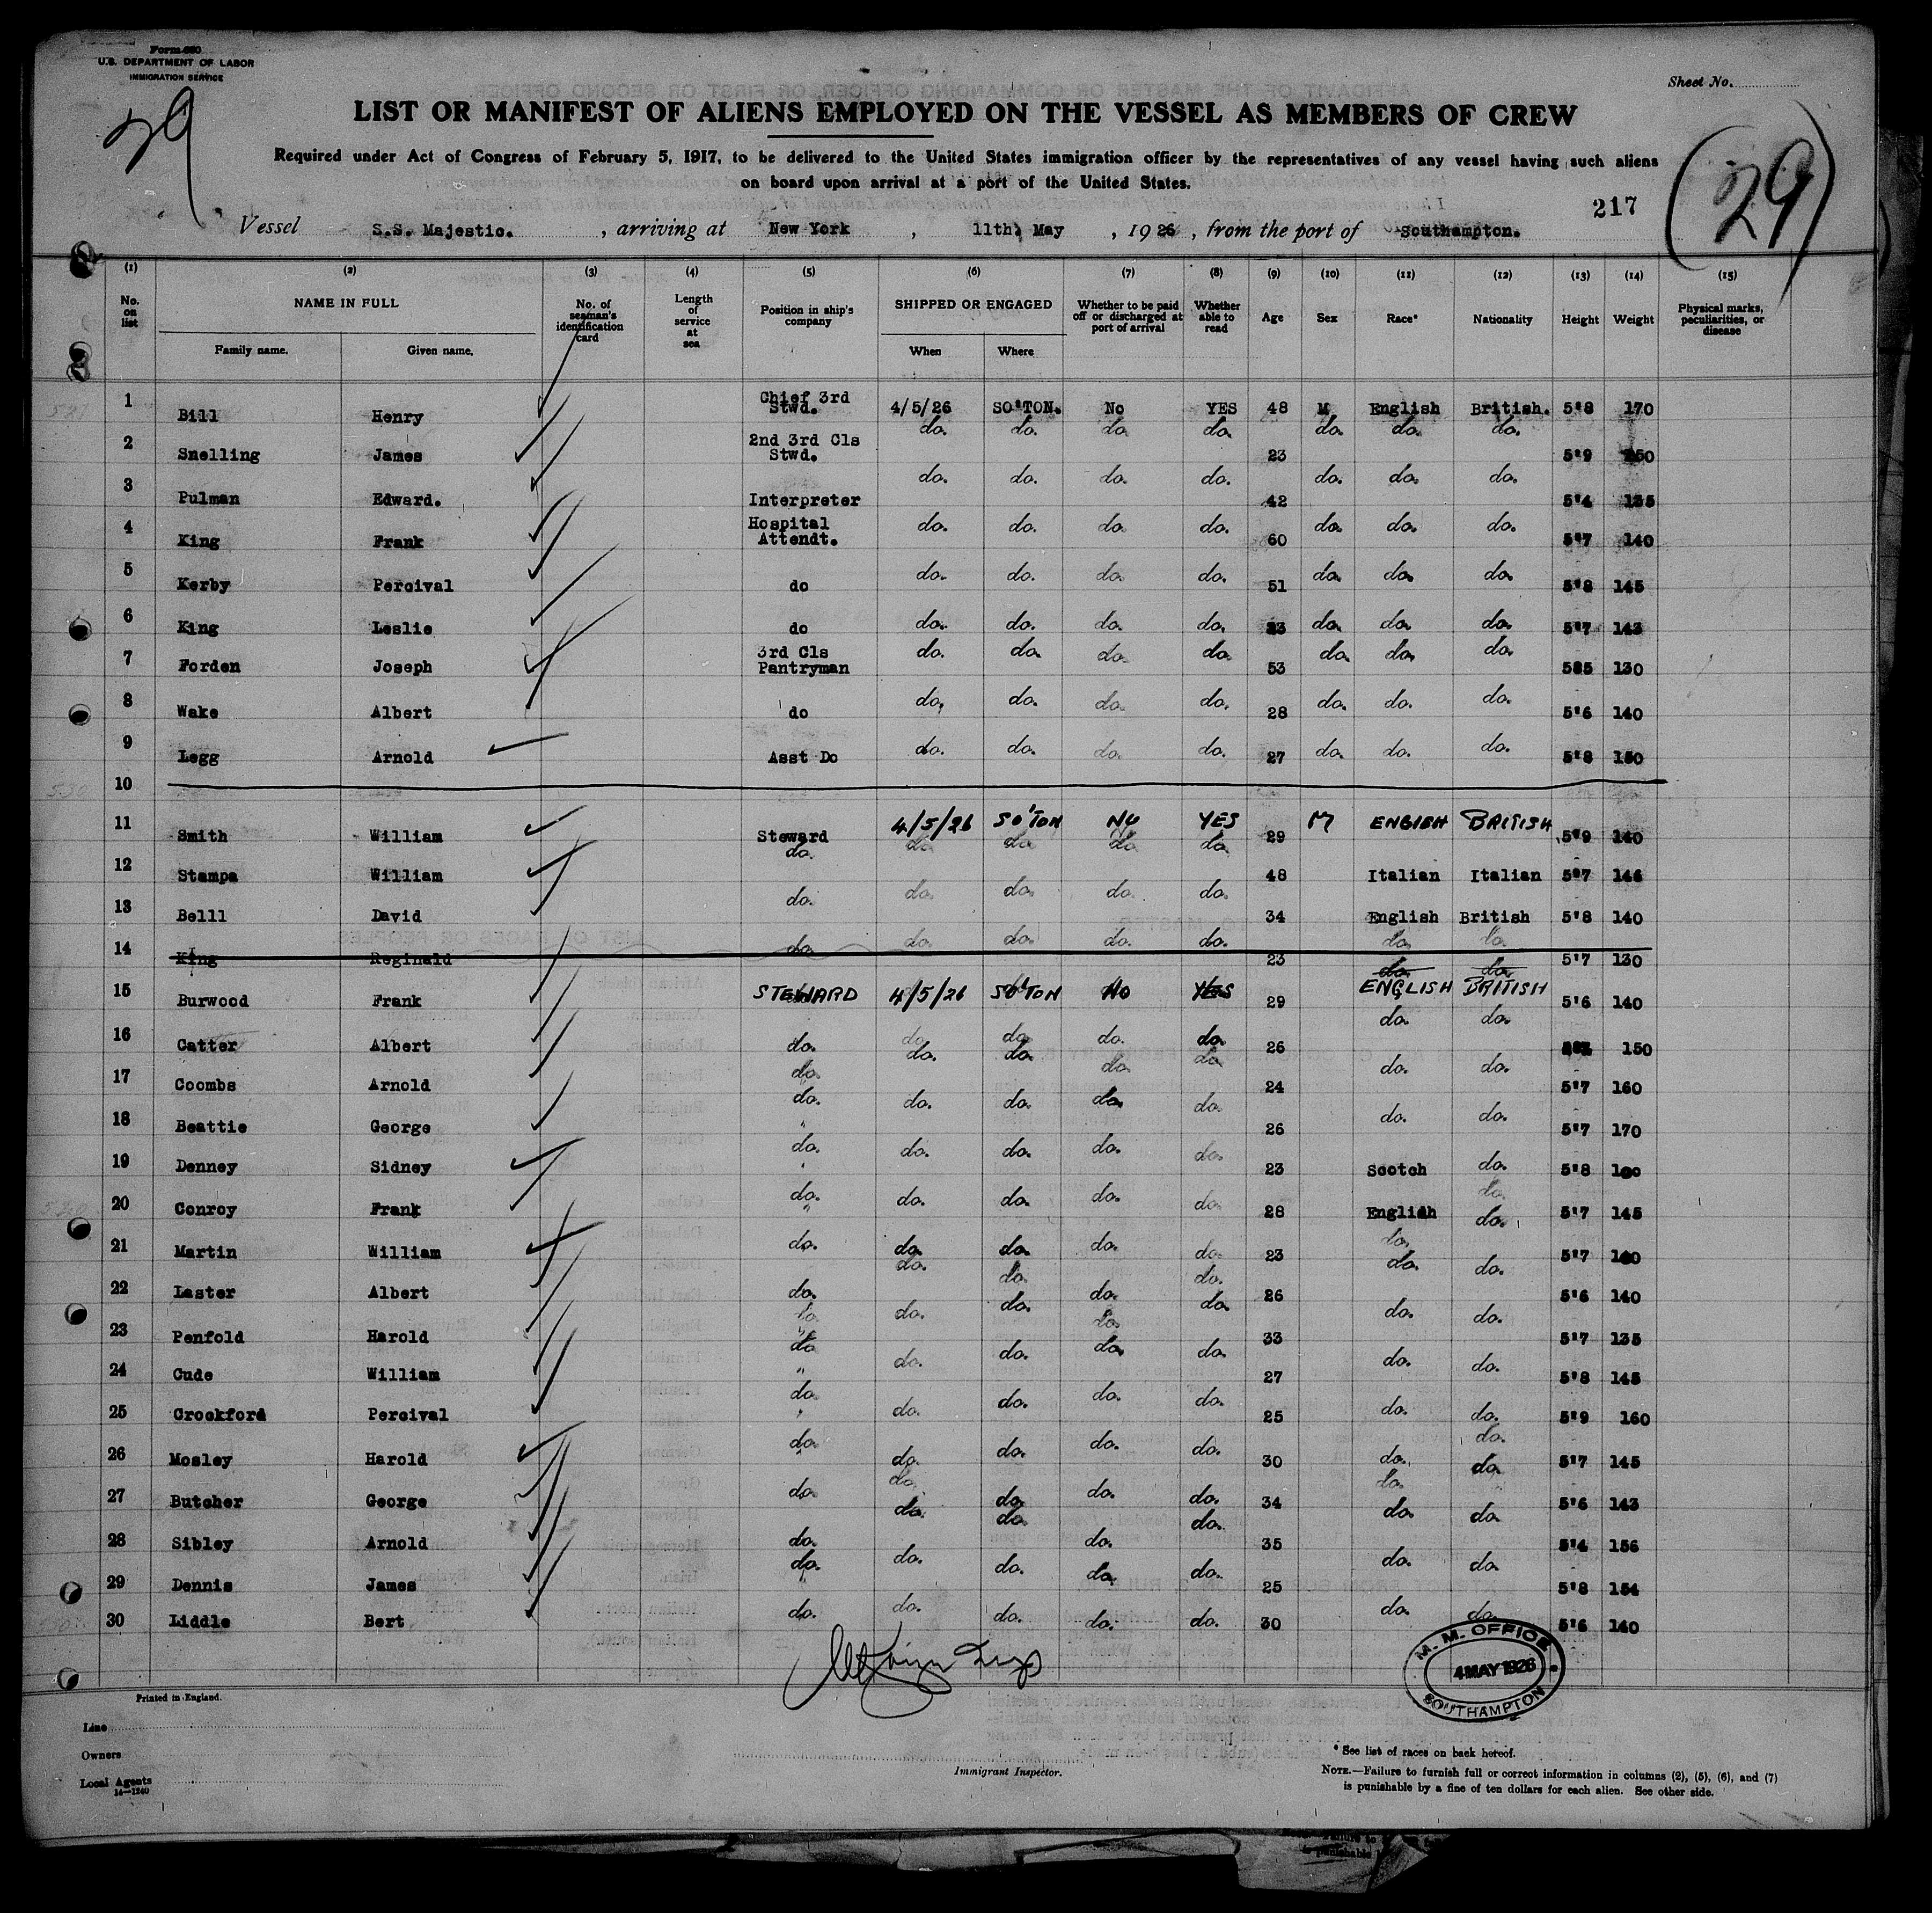 Form 680
U.S. DEPARTMENT OF LABOR
IMMIGRATION SERVICE
Sheet No.
29
LIST OR MANIFEST OF ALIENS EMPLOYED ON THE VESSEL AS MEMBERS OF CREW
Required under Act of Congress of February 5, 1917, to be delivered to the United States immigration officer by the representatives of any vessel having such aliens
on board upon arrival at a port of the United States.
217
(29)
Vessel S.S. Majestic. , arriving at New York , 11th, May , 1926 , from the port of Southampton.
(1) (2) (3) (4) (5) (6) (7) (8) (9) (10) (11) (12) (13) (14) (15)
No. on list NAME IN FULL No. of seaman's identification card Length of service at sea Position in ship's company SHIPPED OR ENGAGED Whether to be paid off or discharged at port of arrival Whether able to read Age Sex Race* Nationality Height Weight Physical marks, peculiarities, or disease
Family name. Given name. When Where
1 Bill Henry Chief 3rd Stwd. 4/5/26 SO'TON. No YES 48 M English British. 5'8 170
2 Snelling James 2nd 3rd Cls Stwd. do. do. do do. 23 do. do. do. 5'9 150
3 Pulman Edward. Interpreter do. do. do. do. 42 do. do. do. 5'4 135
4 King Frank Hospital Attendt. do. do. do. do. 60 do. do. do. 5'7 140
5 Kerby Percival do do. do. do. do. 51 do. do. do. 5'8 145
6 King Leslie do do. do. do. do. 23 do. do. do. 5'7 143
7 Forden Joseph 3rd Cls Pantryman do. do. do. do. 53 do. do. do. 585 130
8 Wake Albert do do. do. do. do. 28 do. do. do. 5'6 140
9 Legg Arnold Asst Do do. do. do. do. 27 do. do. do. 5'8 150
10
11 Smith William Steward 4/5/26 SO'TON NO YES 29 M ENGISH BRITISH 5'9 140
12 Stampa William do. do. do. do. do. 48 Italian Italian 5'7 146
13 Belll David do. do. do. do. do. 34 English British 5'8 140
14 King Reginald do. do. do. do. do. 23 do. do. 5'7 130
15 Burwood Frank STEWARD 4/5/26 SO'TON NO YES 29 do. do. ENGLISH BRITISH 5'6 140
16 Catter Albert do. do. do. do. do. 26 do. do. 150
17 Coombs Arnold do. do. do. do. do. 24 do. do. 5'7 160
18 Beattie George do. do. do. do. do. 26 do. do. 5'7 170
19 Denney Sidney do. do. do. do. do. 23 Scotch do. 5'8
20 Conroy Frank do. do. do. do. do. 28 English do. 5'7 145
21 Martin William do. do. do. do. do. 23 do. do. 5'7
22 Laster Albert do. do. do. do. do. 26 do. do. 5'6 140
23 Penfold Harold do. do. do. do. do. 33 do. do. 5'7 135
24 Cude William do. do. do. do. do. 27 do. do. 5'8 145
25 Crockford Percival do. do. do. do. do. 25 do. do. 5'9 160
26 Mosley Harold do. do. do. do. do. 30 do. do. 5'7 145
27 Butcher George do. do. do. do. do. 34 do. do. 5'6 143
28 Sibley Arnold do. do. do. do. do. 35 do. do. 5'4 156
29 Dennis James do. do. do. do. do. 25 do. do. 5'8 154
30 Liddle Bert do. do. do. do. do. 30 do. do. 5'6 140
M. M. OFFICE
4 MAY 1926
SOUTHAMPTON
Printed in England.
Line
Owners
Local Agents
14—1240
Immigrant Inspector.
* See list of races on back hereof.
NOTE.—Failure to furnish full or correct information in columns (2), (5), (6), and (7)
is punishable by a fine of ten dollars for each alien. See other side.